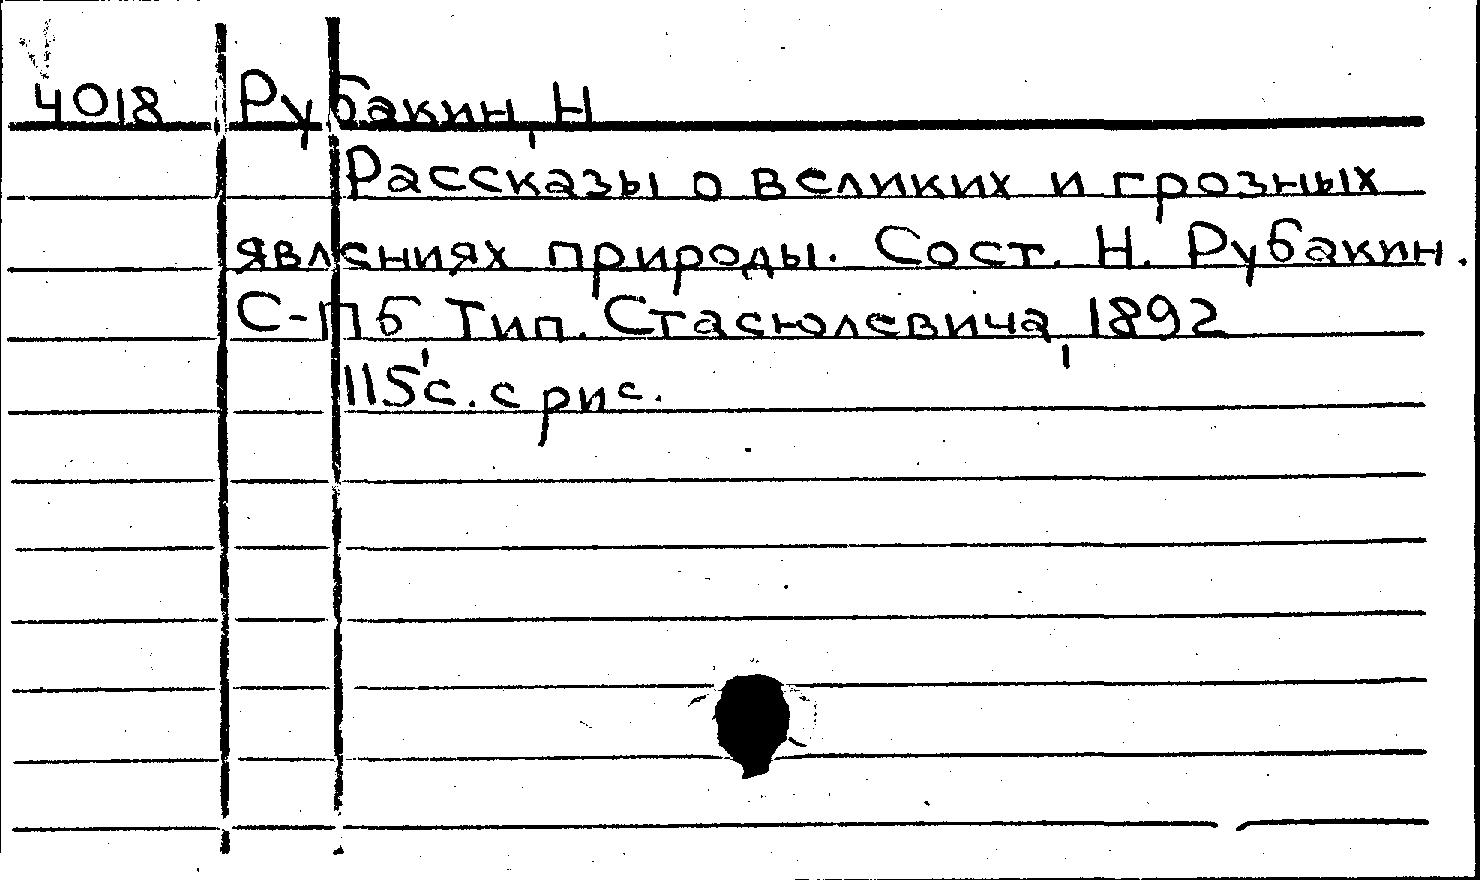 4018 Рубакин, Н
Рассказы о великих и грозных
явлениях природы. Сост. Н. Рубакин.
С-Пб, Тип. Стасюлевича, 1892
115 с. с рис.